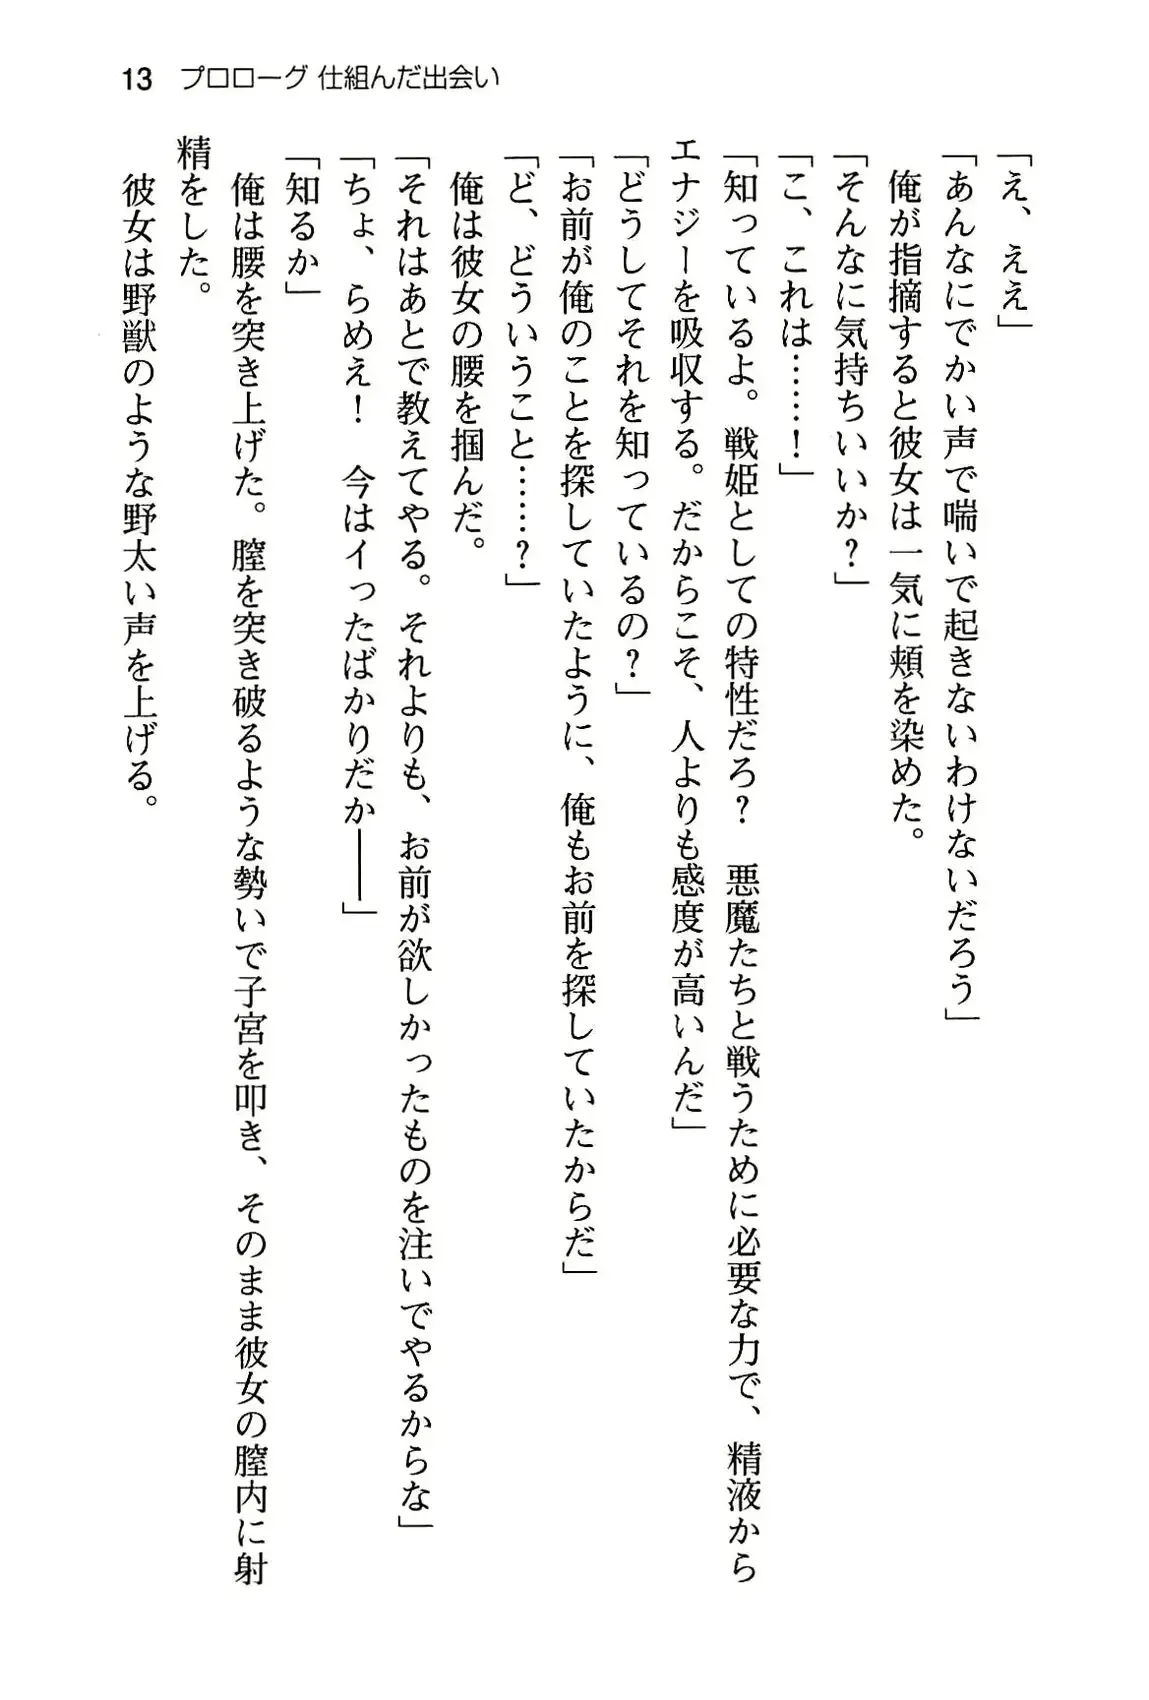 13 プロローグ 仕組んだ出会い
「え、ええ」
「あんなにでかい声で喘いで起きないわけないだろう」
俺が指摘すると彼女は一気に頬を染めた。
「そんなに気持ちいいか？」
「こ、これは……！」
「知っているよ。戦姫としての特性だろ？　悪魔たちと戦うために必要な力で、精液から
エナジーを吸収する。だからこそ、人よりも感度が高いんだ」
「どうしてそれを知っているの？」
「お前が俺のことを探していたように、俺もお前を探していたからだ」
「ど、どういうこと……？」
俺は彼女の腰を掴んだ。
「それはあとで教えてやる。それよりも、お前が欲しかったものを注いでやるからな」
「ちょ、らめえ！　今はイったばかりだか――」
「知るか」
俺は腰を突き上げた。膣を突き破るような勢いで子宮を叩き、そのまま彼女の膣内に射
精をした。
彼女は野獣のような野太い声を上げる。